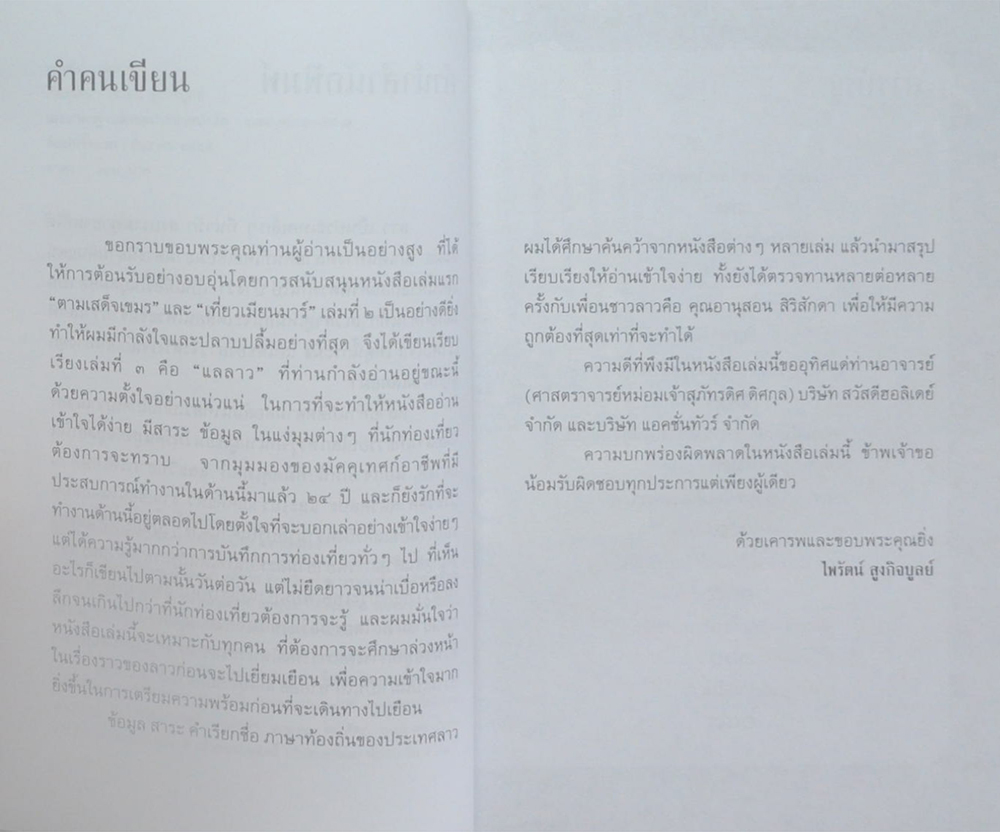 คำคนเขียน
ขอกราบขอบพระคุณท่านผู้อ่านเป็นอย่างสูง ที่ได้
ให้การต้อนรับอย่างอบอุ่นโดยการสนับสนุนหนังสือเล่มแรก
“ตามเสด็จเขมร” และ “เที่ยวเมียนมาร์” เล่มที่ ๒ เป็นอย่างดียิ่ง
ทำให้ผมมีกำลังใจและปลาบปลื้มอย่างที่สุด จึงได้เขียนเรียบ
เรียงเล่มที่ ๓ คือ “แลลาว” ที่ท่านกำลังอ่านอยู่ขณะนี้
ด้วยความตั้งใจอย่างแน่วแน่ ในการที่จะทำให้หนังสืออ่าน
เข้าใจได้ง่าย มีสาระ ข้อมูล ในแง่มุมต่างๆ ที่นักท่องเที่ยว
ต้องการจะทราบ จากมุมมองของมัคคุเทศก์อาชีพที่มี
ประสบการณ์ทำงานในด้านนี้มาแล้ว ๒๔ ปี และก็ยังรักที่จะ
ทำงานด้านนี้อยู่ตลอดไปโดยตั้งใจที่จะบอกเล่าอย่างเข้าใจง่ายๆ
แต่ได้ความรู้มากกว่าการบันทึกการท่องเที่ยวทั่วๆ ไป ที่เห็น
อะไรก็เขียนไปตามนั้นวันต่อวัน แต่ไม่ยืดยาวจนน่าเบื่อหรือลง
ลึกจนเกินไปกว่าที่นักท่องเที่ยวต้องการจะรู้ และผมมั่นใจว่า
หนังสือเล่มนี้จะเหมาะกับทุกคน ที่ต้องการจะศึกษาล่วงหน้า
ในเรื่องราวของลาวก่อนจะไปเยี่ยมเยือน เพื่อความเข้าใจมาก
ยิ่งขึ้นในการเตรียมความพร้อมก่อนที่จะเดินทางไปเยือน
ข้อมูล สาระ คำเรียกชื่อ ภาษาท้องถิ่นของประเทศลาว
ผมได้ศึกษาค้นคว้าจากหนังสือต่างๆ หลายเล่ม แล้วนำมาสรุป
เรียบเรียงให้อ่านเข้าใจง่าย ทั้งยังได้ตรวจทานหลายต่อหลาย
ครั้งกับเพื่อนชาวลาวคือ คุณอานุสอน สิริสักดา เพื่อให้มีความ
ถูกต้องที่สุดเท่าที่จะทำได้
ความดีที่พึงมีในหนังสือเล่มนี้ขออุทิศแด่ท่านอาจารย์
(ศาสตราจารย์หม่อมเจ้าสุภัทรดิศ ดิศกุล) บริษัท สวัสดีฮอลิเดย์
จำกัด และบริษัท แอคชั่นทัวร์ จำกัด
ความบกพร่องผิดพลาดในหนังสือเล่มนี้ ข้าพเจ้าขอ
น้อมรับผิดชอบทุกประการแต่เพียงผู้เดียว
ด้วยเคารพและขอบพระคุณยิ่ง
ไพรัตน์ สูงกิจบูลย์